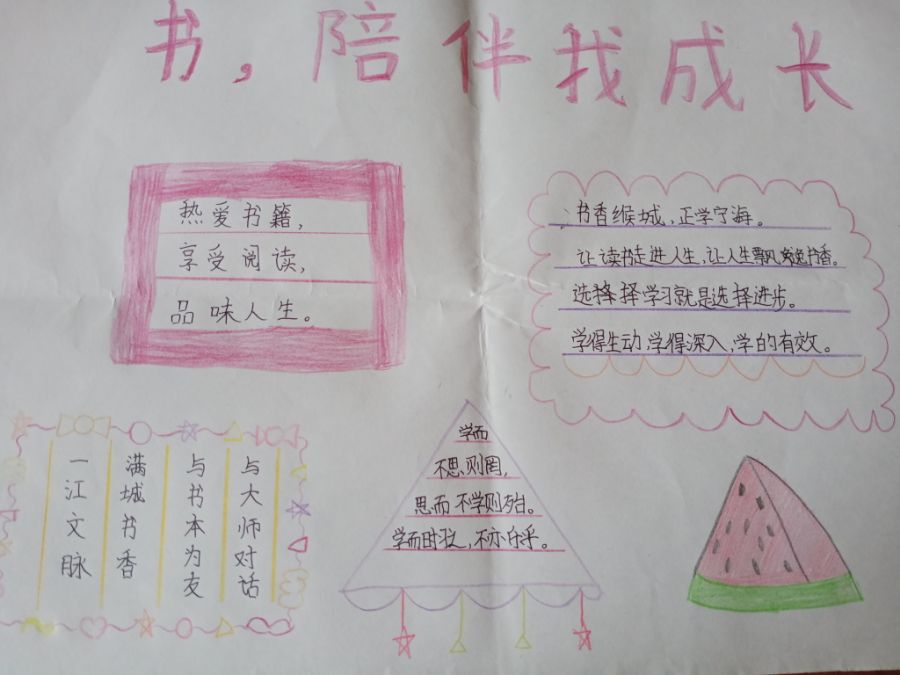 书，陪伴找成长
热爱书籍，
享受阅读，
品味人生。
书香缑城，正学宁海。
让读书走进人生，让人生飘逸书香。
选择择学习就是选择进步。
学得生动，学得深入，学的有效。
与大师对话
与书本为友
满城书香
一江文脉
学而
不思则罔，
思而不学则殆。
学而时习之，不亦乐乎。